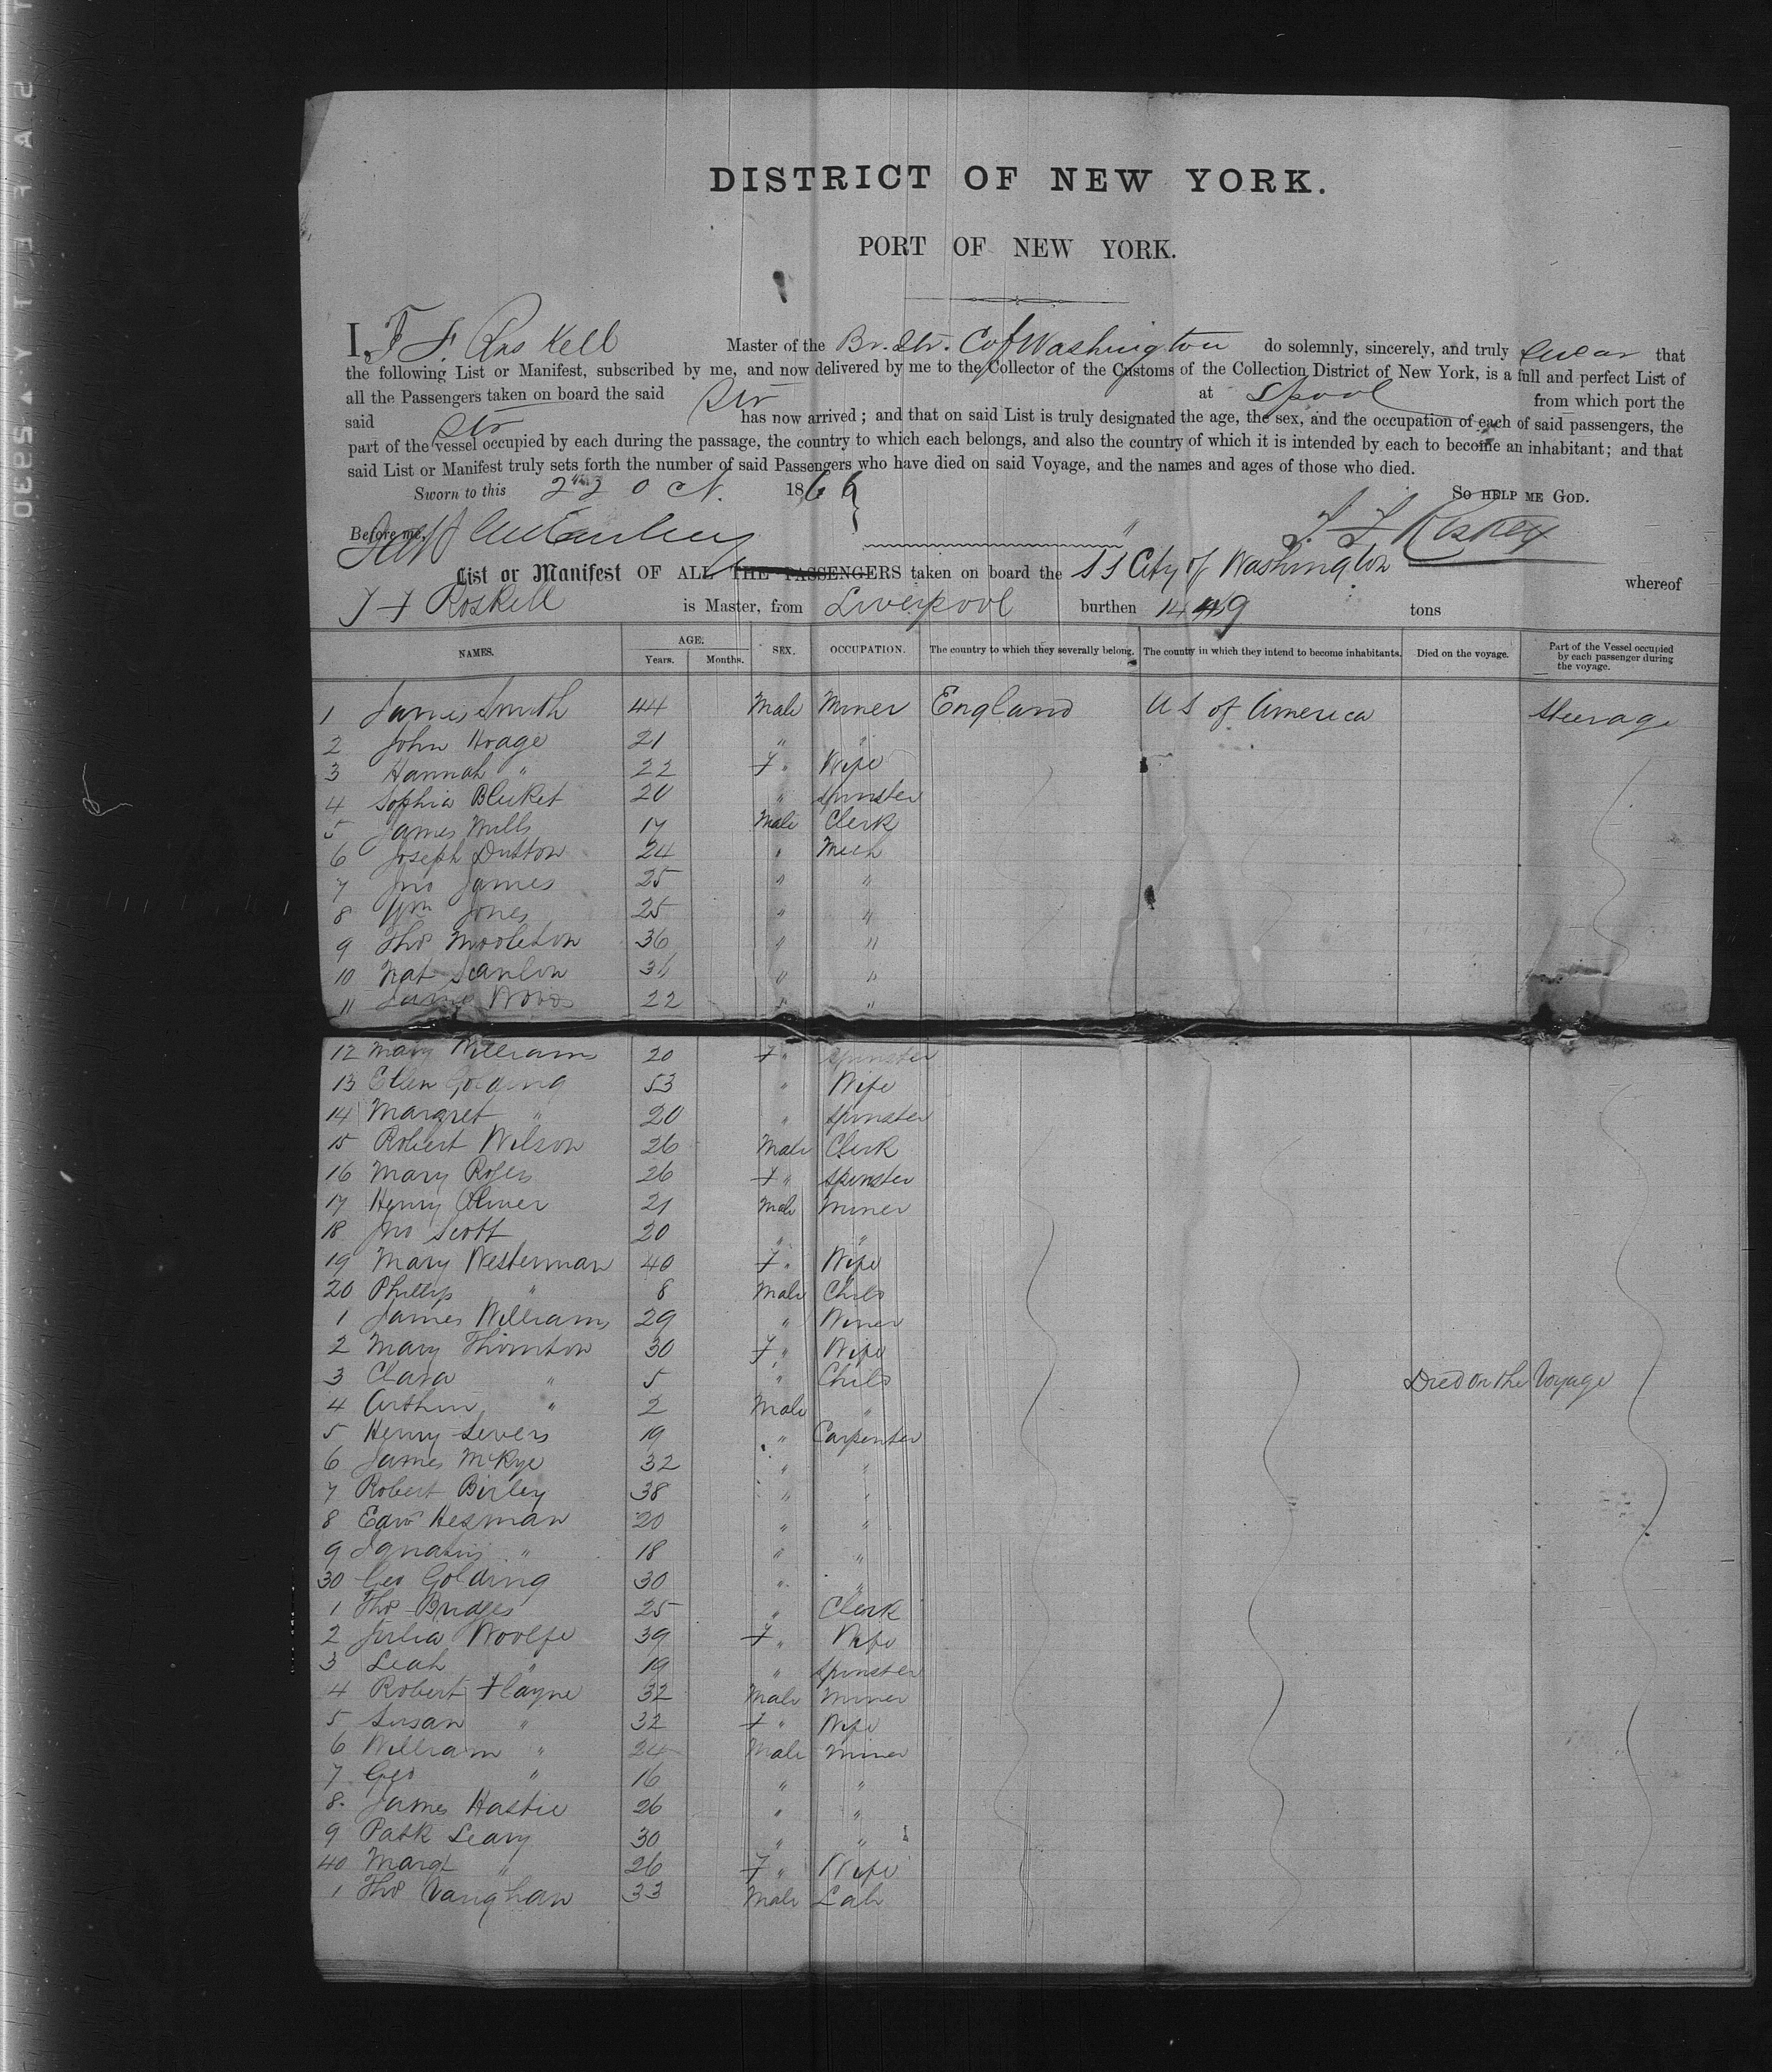 DISTRICT OF NEW YORK.
PORT OF NEW YORK.
I, T F. Roskell Master of the Br. Str. C of Washington do solemnly, sincerely, and truly swear that
the following List or Manifest, subscribed by me, and now delivered by me to the Collector of the Customs of the Collection District of New York, is a full and perfect List of
all the Passengers taken on board the said Str at Lpool from which port the
said Str has now arrived; and that on said List is truly designated the age, the sex, and the occupation of each of said passengers, the
part of the vessel occupied by each during the passage, the country to which each belongs, and also the country of which it is intended by each to become an inhabitant; and that
said List or Manifest truly sets forth the number of said Passengers who have died on said Voyage, and the names and ages of those who died.
Sworn to this 22 Oct. 1866 SO HELP ME GOD.
Before me,
List or Manifest OF ALL THE PASSENGERS taken on board the S S City of Washington whereof
T F Roskell is Master, from Liverpool burthen 1449 tons
NAMES. AGE. Years. Months. SEX. OCCUPATION. The country to which they severally belong. The country in which they intend to become inhabitants. Died on the voyage. Part of the Vessel occupied by each passenger during the voyage.
1 James Smith 44 Male Miner England U S of America Steerage
2 John Hoage 21 " "
3 Hannah " 22 F " Wife
4 Sophia Blicket 20 " Spinster
5 James Mills 17 Male Clerk
6 Joseph Dutton 24 " Mech
7 Jno James 25 " "
8 Wm Jones 25 " "
9 Thos Middleton 36 " "
10 Nat Scanlon 36 " "
11 James Woods 22 " "
12 Mary Williams 20 F " Spinster
13 Ellen Golding 53 " Wife
14 Margret " 20 " Spinster
15 Robert Wilson 26 Male Clerk
16 Mary Rogers 26 F " Spinster
17 Henry Oliver 21 Male Miner
18 Jno Scott 20 " "
19 Mary Westerman 40 F " Wife
20 Phillip " 8 Male Child
1 James Williams 29 " Miner
2 Mary Thornton 30 F " Wife
3 Clara " 5 " Child Died on the Voyage
4 Arthur " 2 Male "
5 Henry Severs 19 " Carpenter
6 James McKye 32 " "
7 Robert Birley 38 " "
8 Edwd Hesman 20 " "
9 Ignatius " 18 " "
30 Geo Golding 30 " "
1 Thos Bridges 25 " Clerk
2 Julia Woolfe 39 F " Wife
3 Leah " 19 " Spinster
4 Robert Flayne 32 Male Miner
5 Susan " 32 F " Wife
6 William " 24 Male Miner
7 Geo " 16 " "
8 James Hastie 26 " "
9 Patk Leary 30 " "
40 Margt " 26 F " Wife
1 Thos Vaughan 33 Male Lab